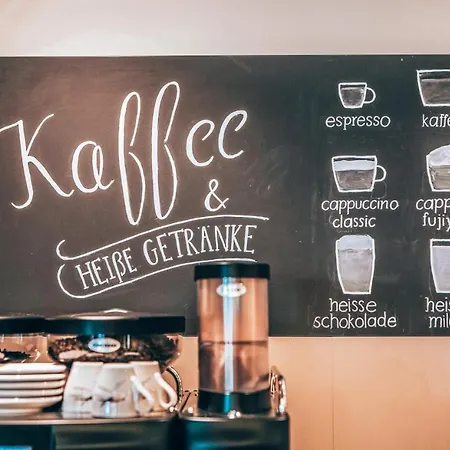 Kaffee
&
HEIßE GETRÄNKE
espresso
kaffe
cappuccino
classic
capp
fujiy
heisse
schokolade
heis
mil